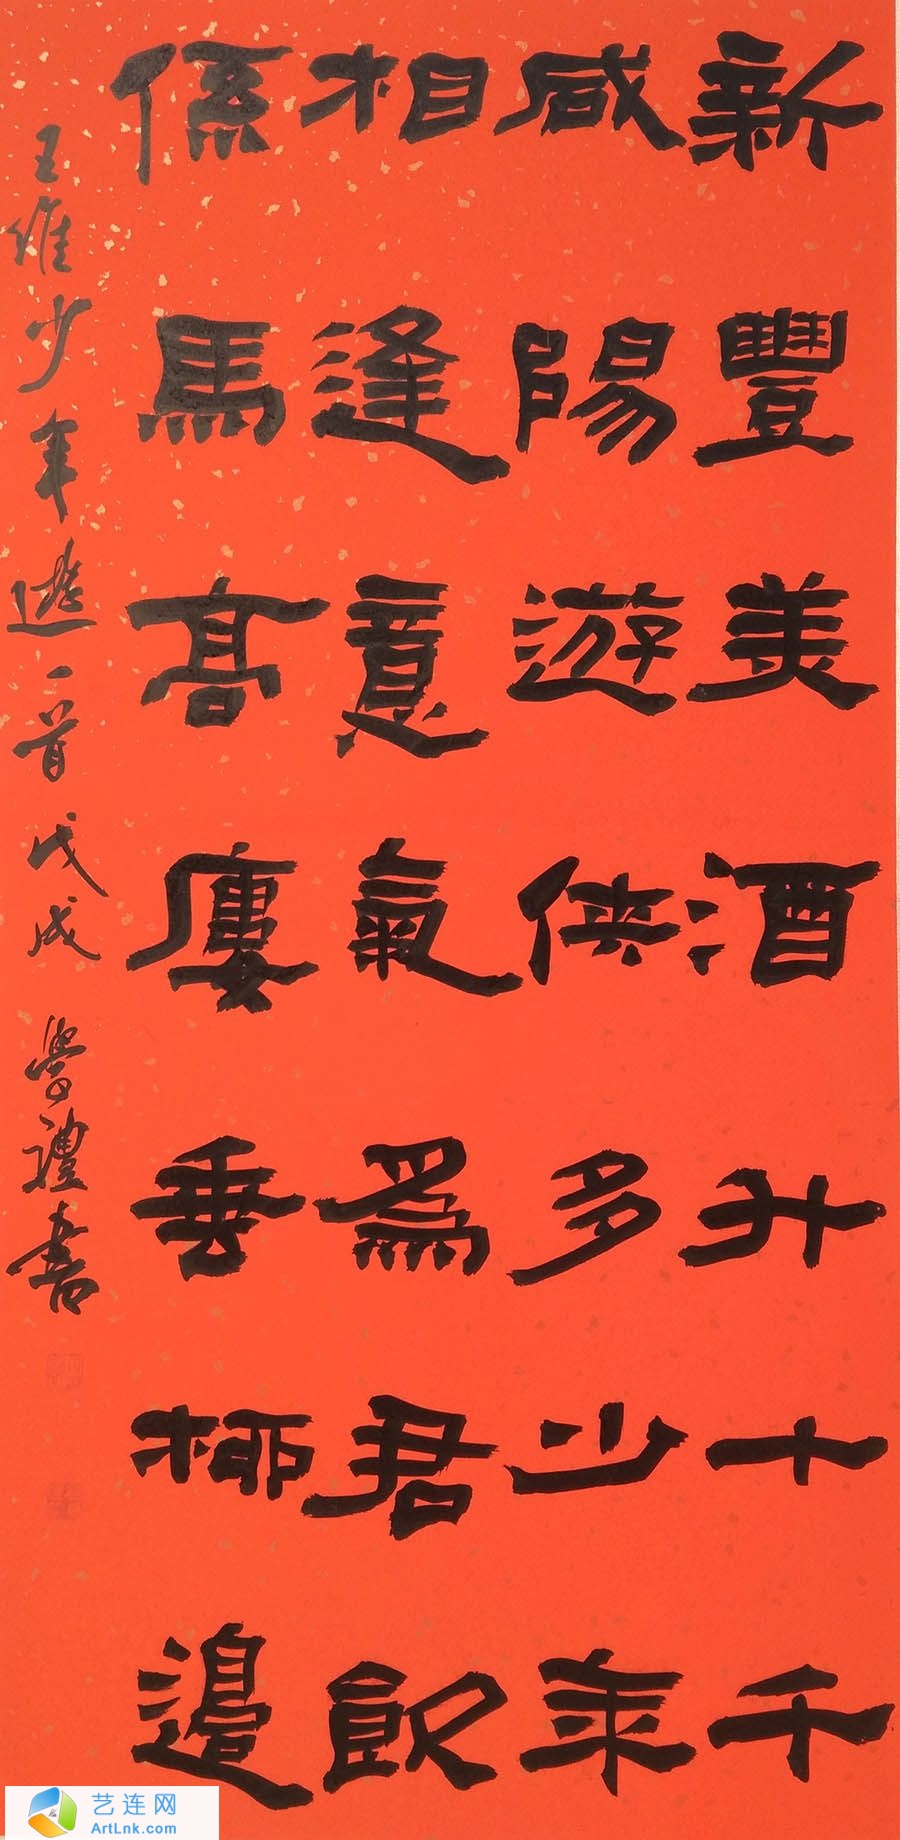 新豐美酒斗十千
咸陽遊俠多少年
相逢意氣爲君飲
係馬高廔垂柳邊
王維少年遊一首戊戌學禮書
艺连网
ArtLnk.com